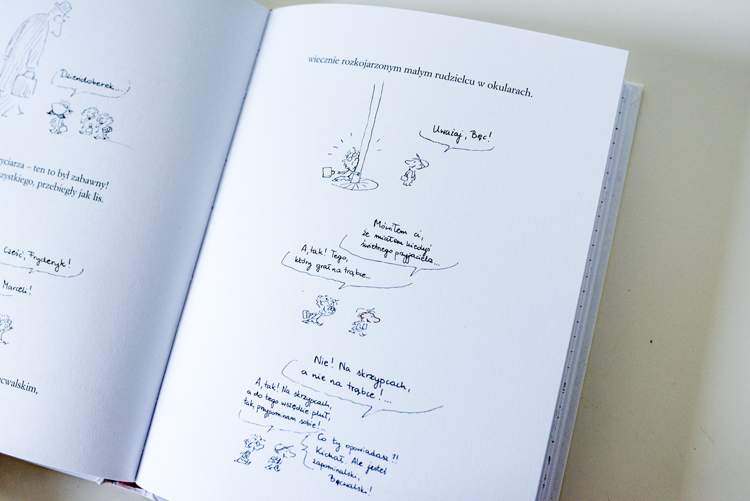 Dzieńdoberek...
yciarza – ten to był zabawny!
zystkiego, przebiegły jak lis.
Cześć, Fryderyk!
Marceli!
cwalskim,
wiecznie rozkojarzonym małym rudzielcu w okularach.
Uważaj, Bęc!
Mówiłem ci,
że miałam kiedyś
świetnego przyjaciela...
A, tak! Tego,
który grał na trąbce...
Nie! Na skrzypcach,
a nie na trąbce!...
A, tak! Na skrzypcach,
a do tego wszędzie pluł,
tak, przypominam sobie!
Co ty opowiadasz?!
Kichał. Ale jesteś
zapominalski,
Bęcwalski!